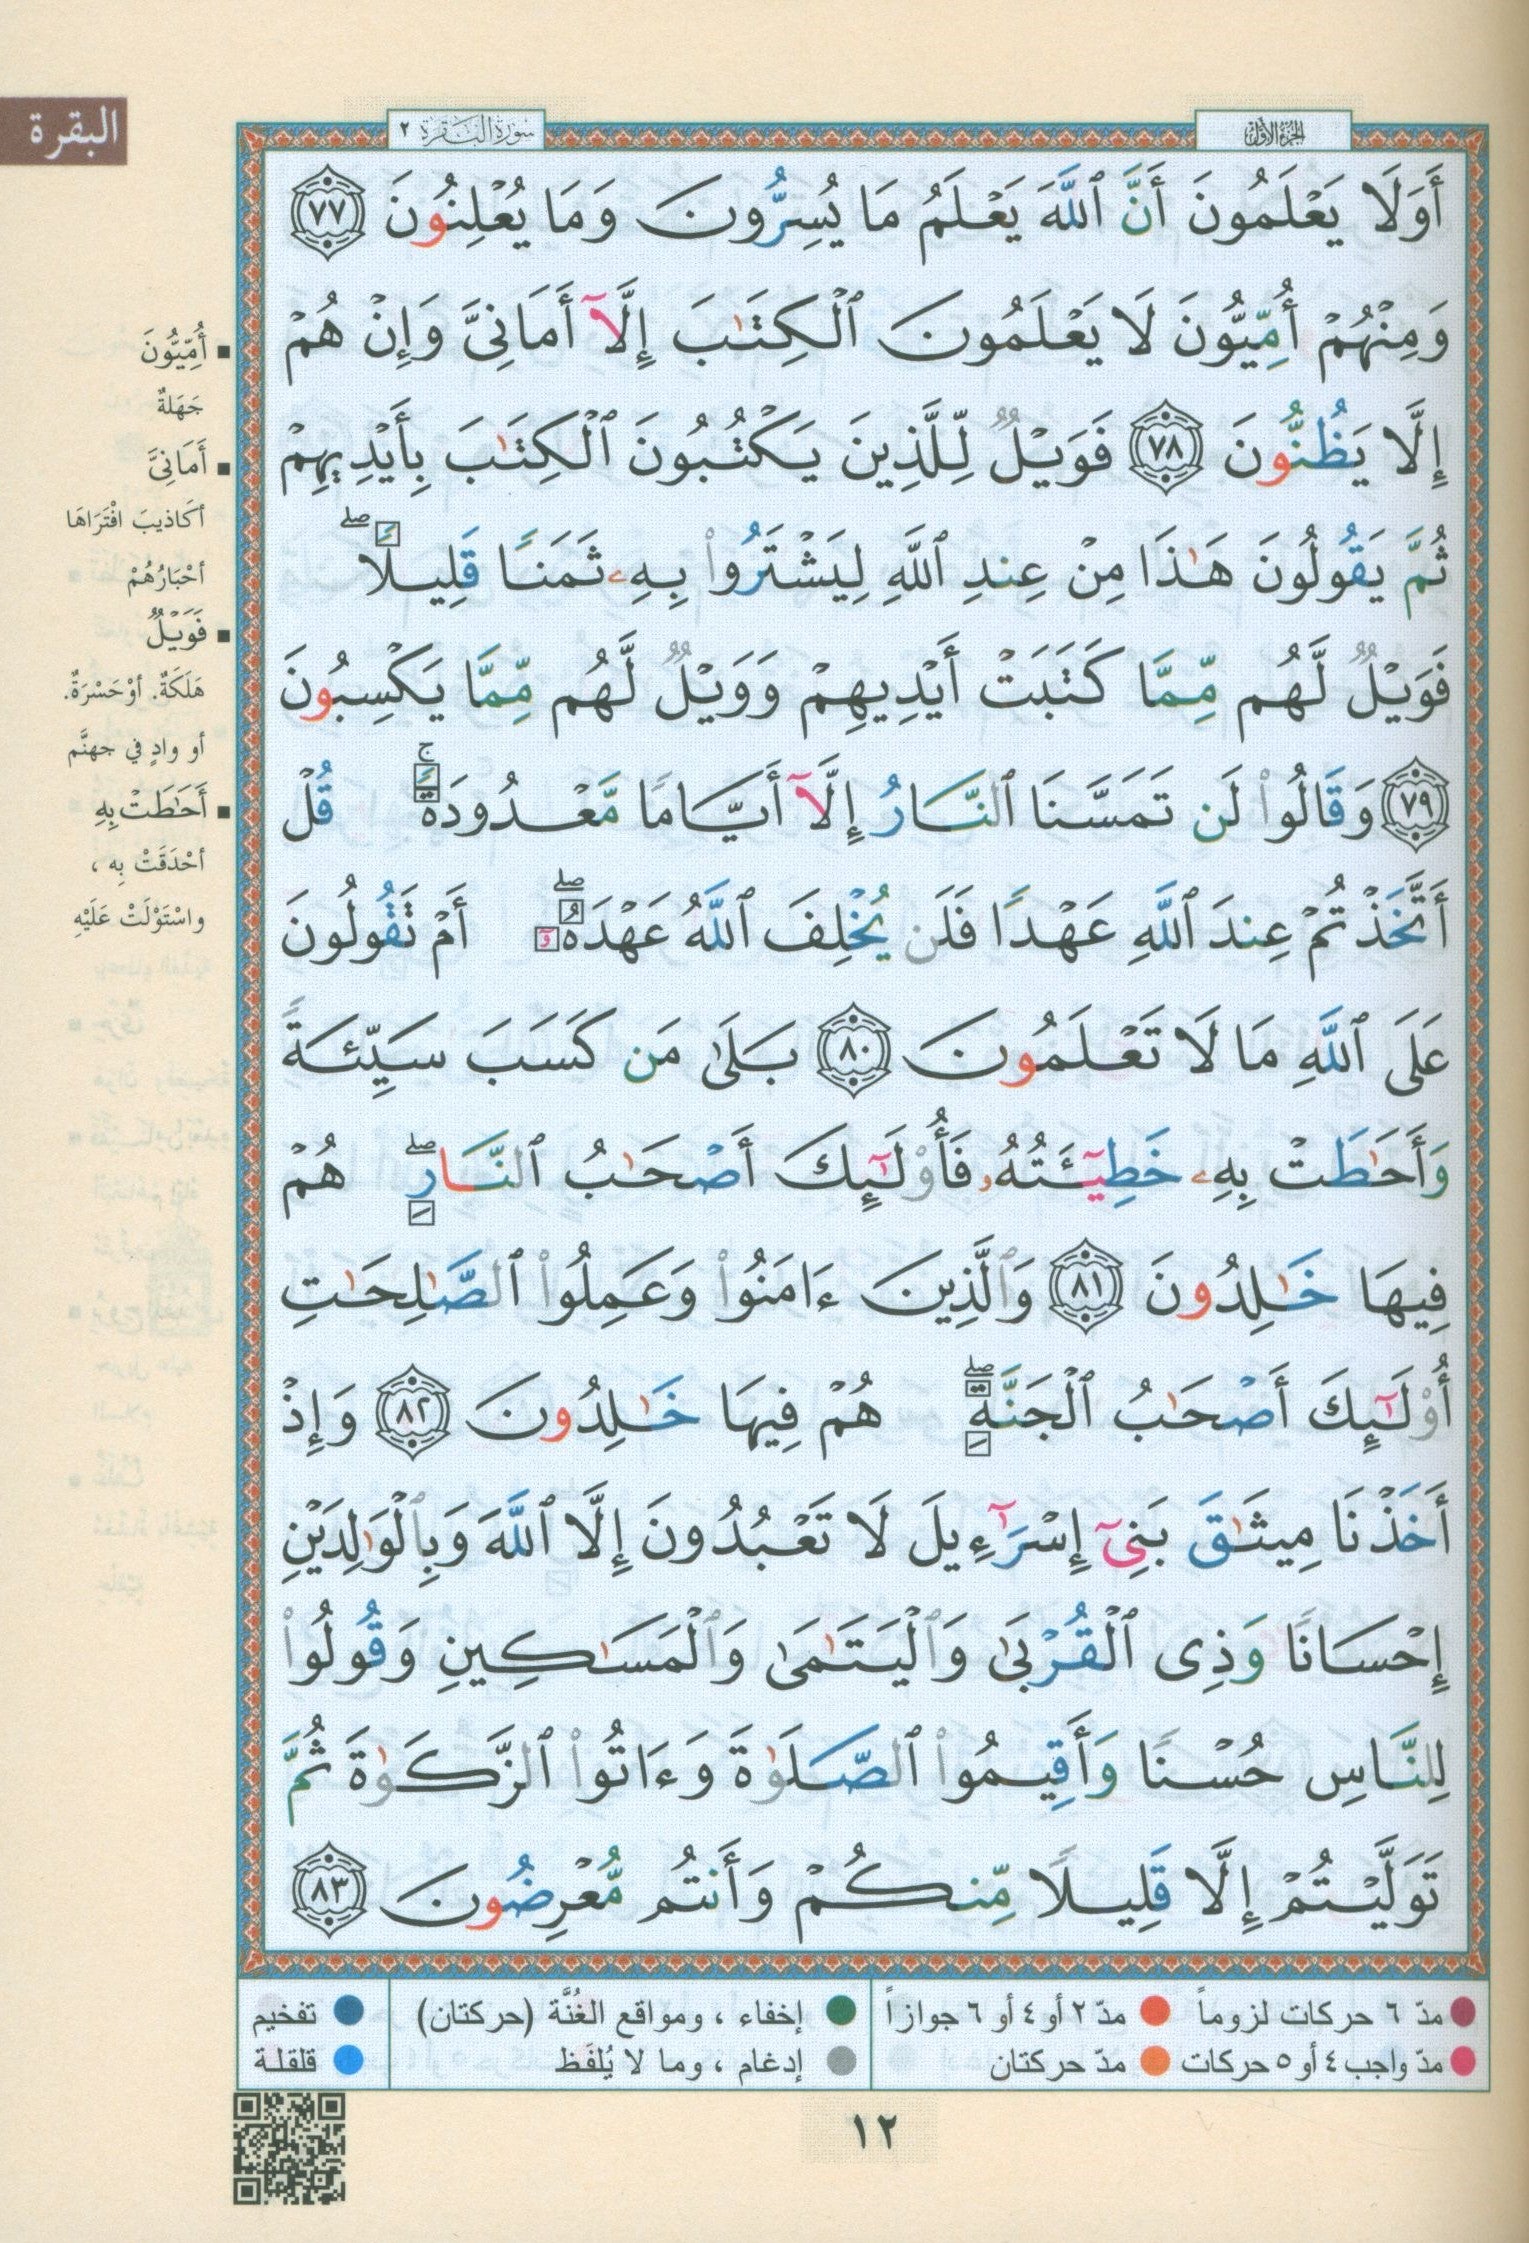 البقرة
سورة البقرة ٢
الجزء الأول
أَوَلَا يَعْلَمُونَ أَنَّ ٱللَّهَ يَعْلَمُ مَا يُسِرُّونَ وَمَا يُعْلِنُونَ ٧٧
وَمِنْهُمْ أُمِّيُّونَ لَا يَعْلَمُونَ ٱلْكِتَٰبَ إِلَّآ أَمَانِىَّ وَإِنْ هُمْ
إِلَّا يَظُنُّونَ ٧٨ فَوَيْلٌ لِّلَّذِينَ يَكْتُبُونَ ٱلْكِتَٰبَ بِأَيْدِيهِمْ
ثُمَّ يَقُولُونَ هَٰذَا مِنْ عِندِ ٱللَّهِ لِيَشْتَرُوا۟ بِهِۦ ثَمَنًا قَلِيلًا ۖ
فَوَيْلٌ لَّهُم مِّمَّا كَتَبَتْ أَيْدِيهِمْ وَوَيْلٌ لَّهُم مِّمَّا يَكْسِبُونَ
٧٩ وَقَالُوا۟ لَن تَمَسَّنَا ٱلنَّارُ إِلَّآ أَيَّامًا مَّعْدُودَةً ۚ قُلْ
أَتَّخَذْتُمْ عِندَ ٱللَّهِ عَهْدًا فَلَن يُخْلِفَ ٱللَّهُ عَهْدَهُۥٓ ۖ أَمْ تَقُولُونَ
عَلَى ٱللَّهِ مَا لَا تَعْلَمُونَ ٨٠ بَلَىٰ مَن كَسَبَ سَيِّئَةً
وَأَحَٰطَتْ بِهِۦ خَطِيٓـَٔتُهُۥ فَأُو۟لَٰٓئِكَ أَصْحَٰبُ ٱلنَّارِ ۖ هُمْ
فِيهَا خَٰلِدُونَ ٨١ وَٱلَّذِينَ ءَامَنُوا۟ وَعَمِلُوا۟ ٱلصَّٰلِحَٰتِ
أُو۟لَٰٓئِكَ أَصْحَٰبُ ٱلْجَنَّةِ ۖ هُمْ فِيهَا خَٰلِدُونَ ٨٢ وَإِذْ
أَخَذْنَا مِيثَٰقَ بَنِىٓ إِسْرَٰٓءِيلَ لَا تَعْبُدُونَ إِلَّا ٱللَّهَ وَبِٱلْوَٰلِدَيْنِ
إِحْسَانًا وَذِى ٱلْقُرْبَىٰ وَٱلْيَتَٰمَىٰ وَٱلْمَسَٰكِينِ وَقُولُوا۟
لِلنَّاسِ حُسْنًا وَأَقِيمُوا۟ ٱلصَّلَوٰةَ وَءَاتُوا۟ ٱلزَّكَوٰةَ ثُمَّ
تَوَلَّيْتُمْ إِلَّا قَلِيلًا مِّنكُمْ وَأَنتُم مُّعْرِضُونَ ٨٣
▪ أُمِّيُّونَ
جَهَلةٌ
▪ أَمَانِىَّ
أكَاذيبَ افْتَرَاهَا
أحْبَارُهُمْ
▪ فَوَيْلٌ
هَلَكَةٌ. أوْ حَسْرَةٌ.
أو وادٍ في جهنَّم
▪ أَحَٰطَتْ بِهِ
أحْدَقَتْ بِه ،
واسْتَوْلَتْ عَلَيْهِ
مدّ ٦ حركات لزوماً ● مدّ ٢ أو ٤ أو ٦ جوازاً ● إخفاء ، ومواقع الغُنَّة (حركتان) ● تفخيم
مدّ واجب ٤ أو ٥ حركات ● مدّ حركتان ● إدغام ، وما لا يُلفَظ ● قلقلة
١٢